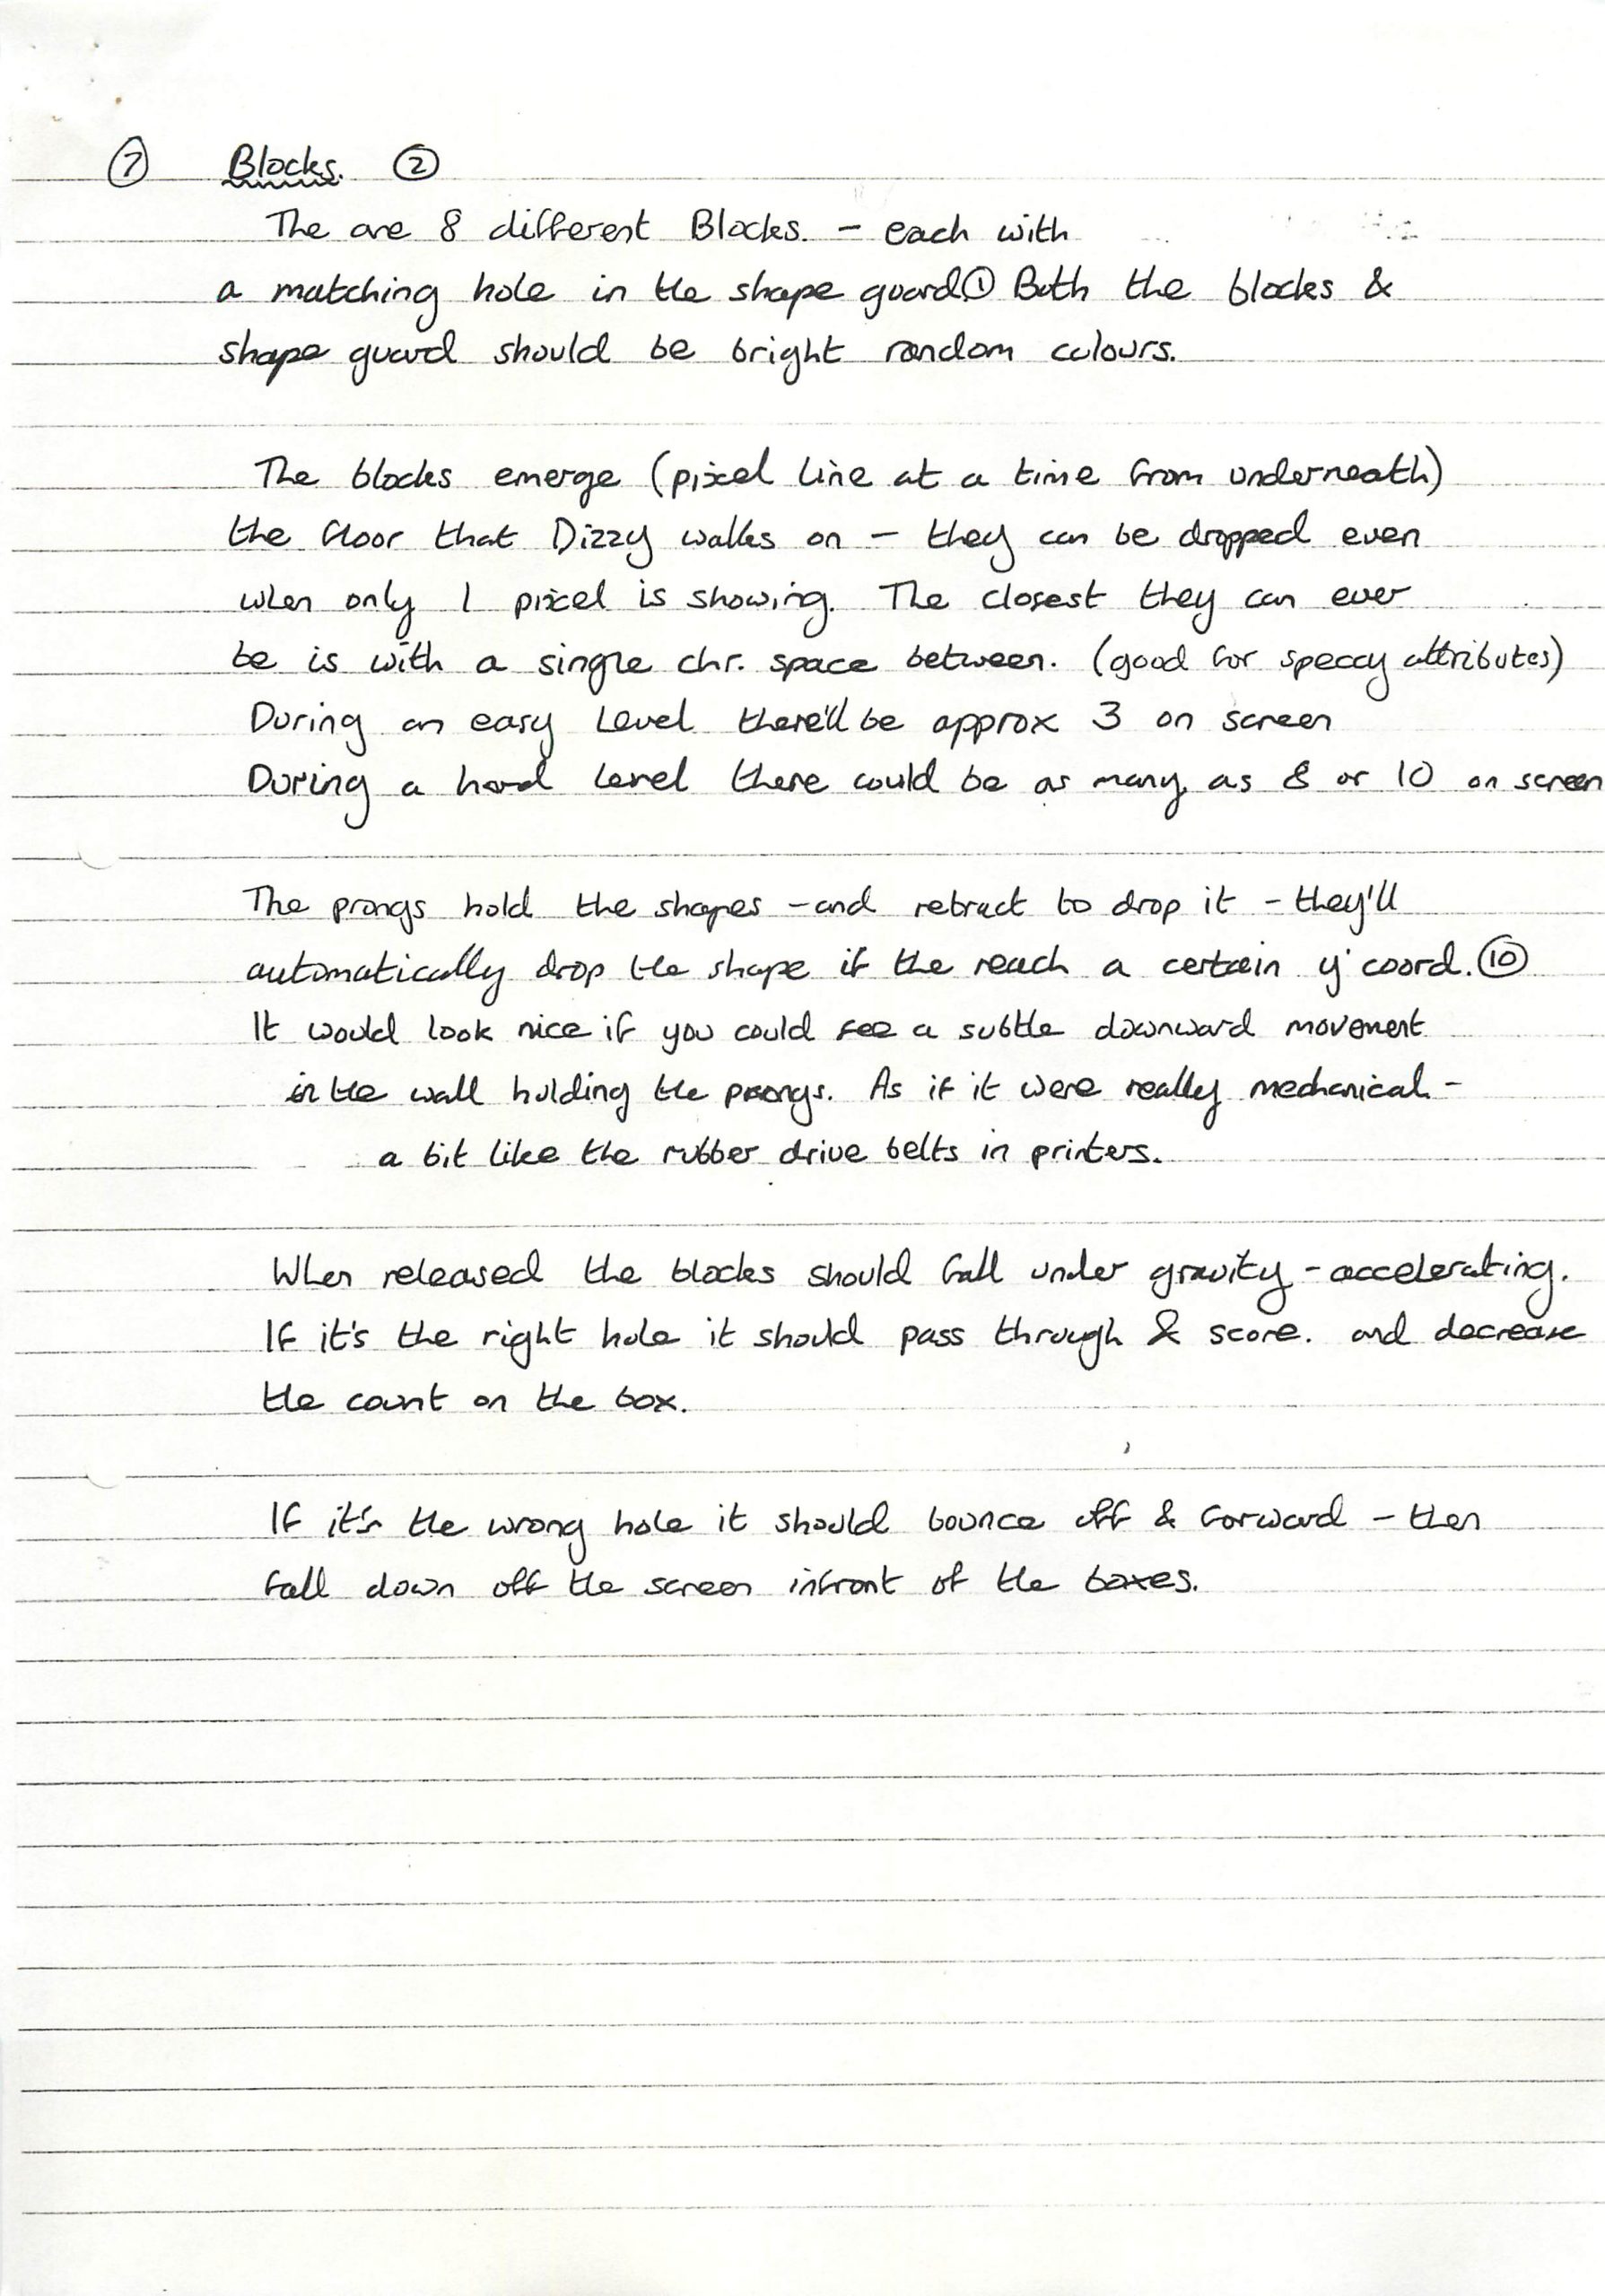 ⑦ Blocks. ②
The are 8 different Blocks. - each with
a matching hole in the shape guard① Both the blocks &
shape guard should be bright random colours.
The blocks emerge (pixel line at a time from underneath)
the floor that Dizzy walks on - they can be dropped even
when only 1 pixel is showing. The closest they can ever
be is with a single chr. space between. (good for speccy attributes)
During an easy level there'll be approx 3 on screen
During a hard level there could be as many as 8 or 10 on screen
The prongs hold the shapes - and retract to drop it - they'll
automatically drop the shape if the reach a certain y' coord. ⑩
It would look nice if you could see a subtle downward movement
in the wall holding the prongs. As if it were really mechanical. -
a bit like the rubber drive belts in printers.
When released the blocks should fall under gravity - accelerating.
If it's the right hole it should pass through & score. and decrease
the count on the box.
If it's the wrong hole it should bounce off & forward - then
fall down off the screen infront of the boxes.